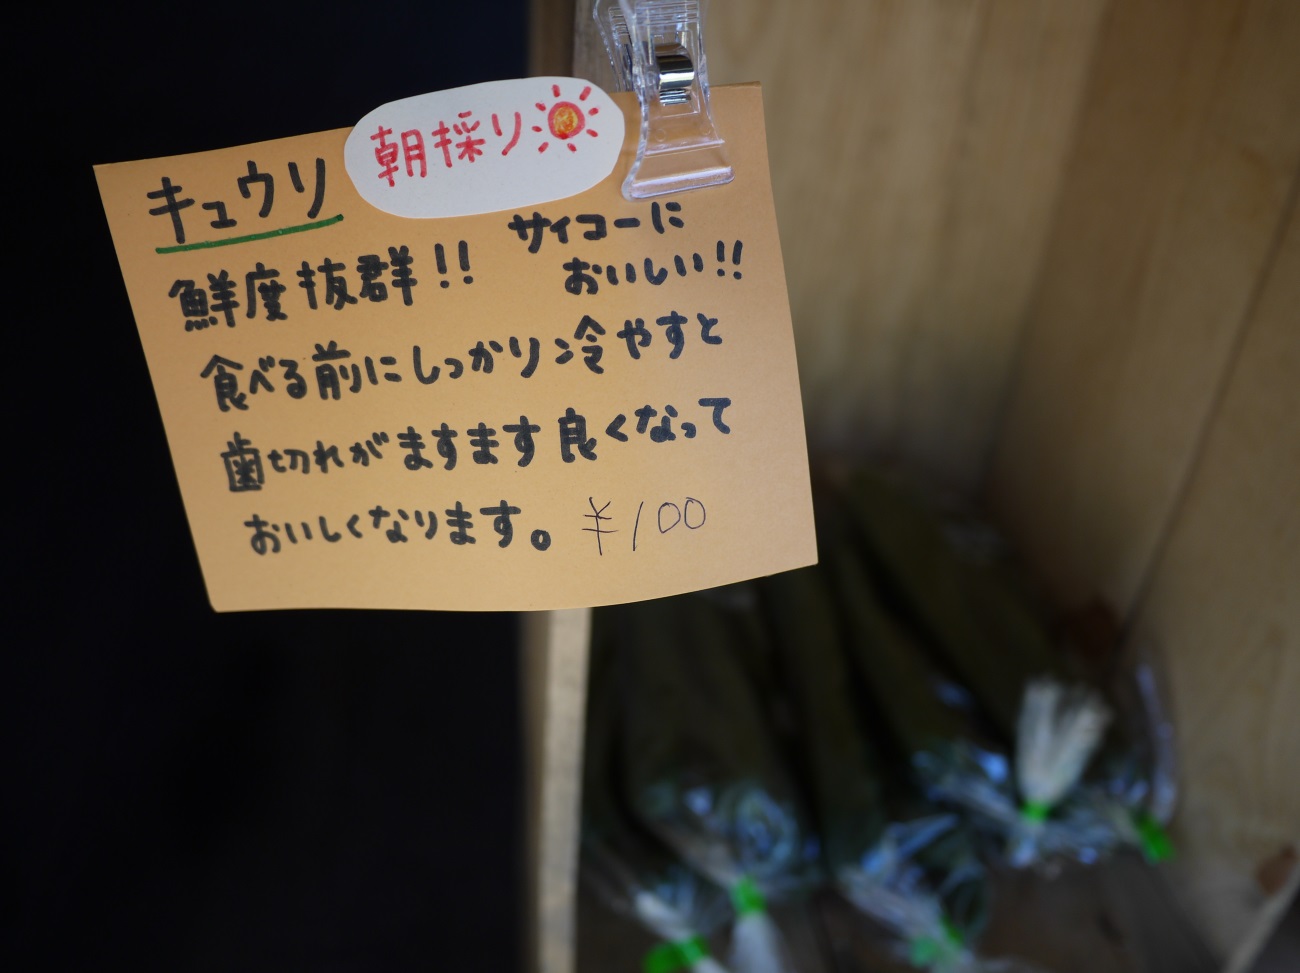 朝採り
キュウリ
サイコーに
おいしい!!
鮮度抜群!!
食べる前にしっかり冷やすと
歯切れがますます良くなって
おいしくなります。 ¥100